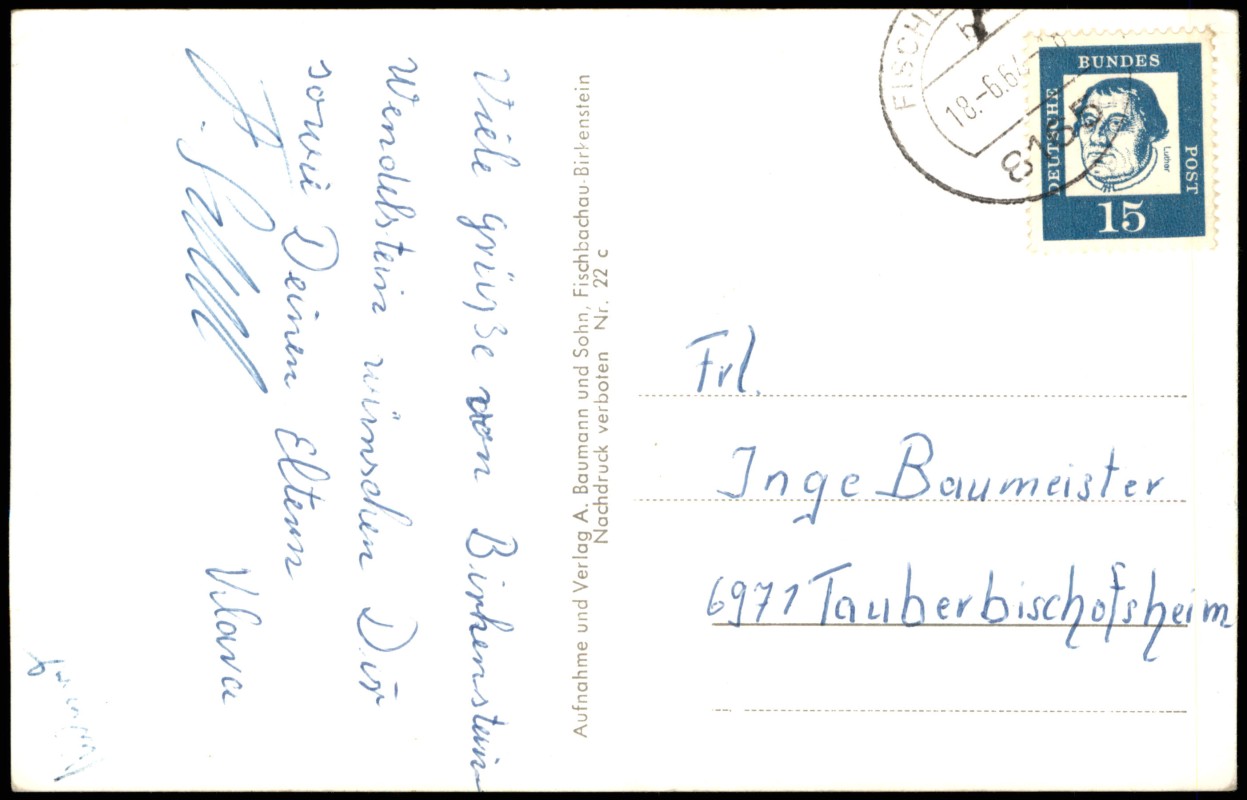 Viele Grüße von Birkenstein
Wendelstein wünschen Dir
sowie Deinen Eltern
Aufnahme und Verlag A. Baumann und Sohn, Fischbachau-Birkenstein
Nachdruck verboten Nr. 22 c
FISCHB
b
18.-6.64
8165
DEUTSCHE
BUNDES
POST
Luther
15
Frl.
Inge Baumeister
6971 Tauberbischofsheim